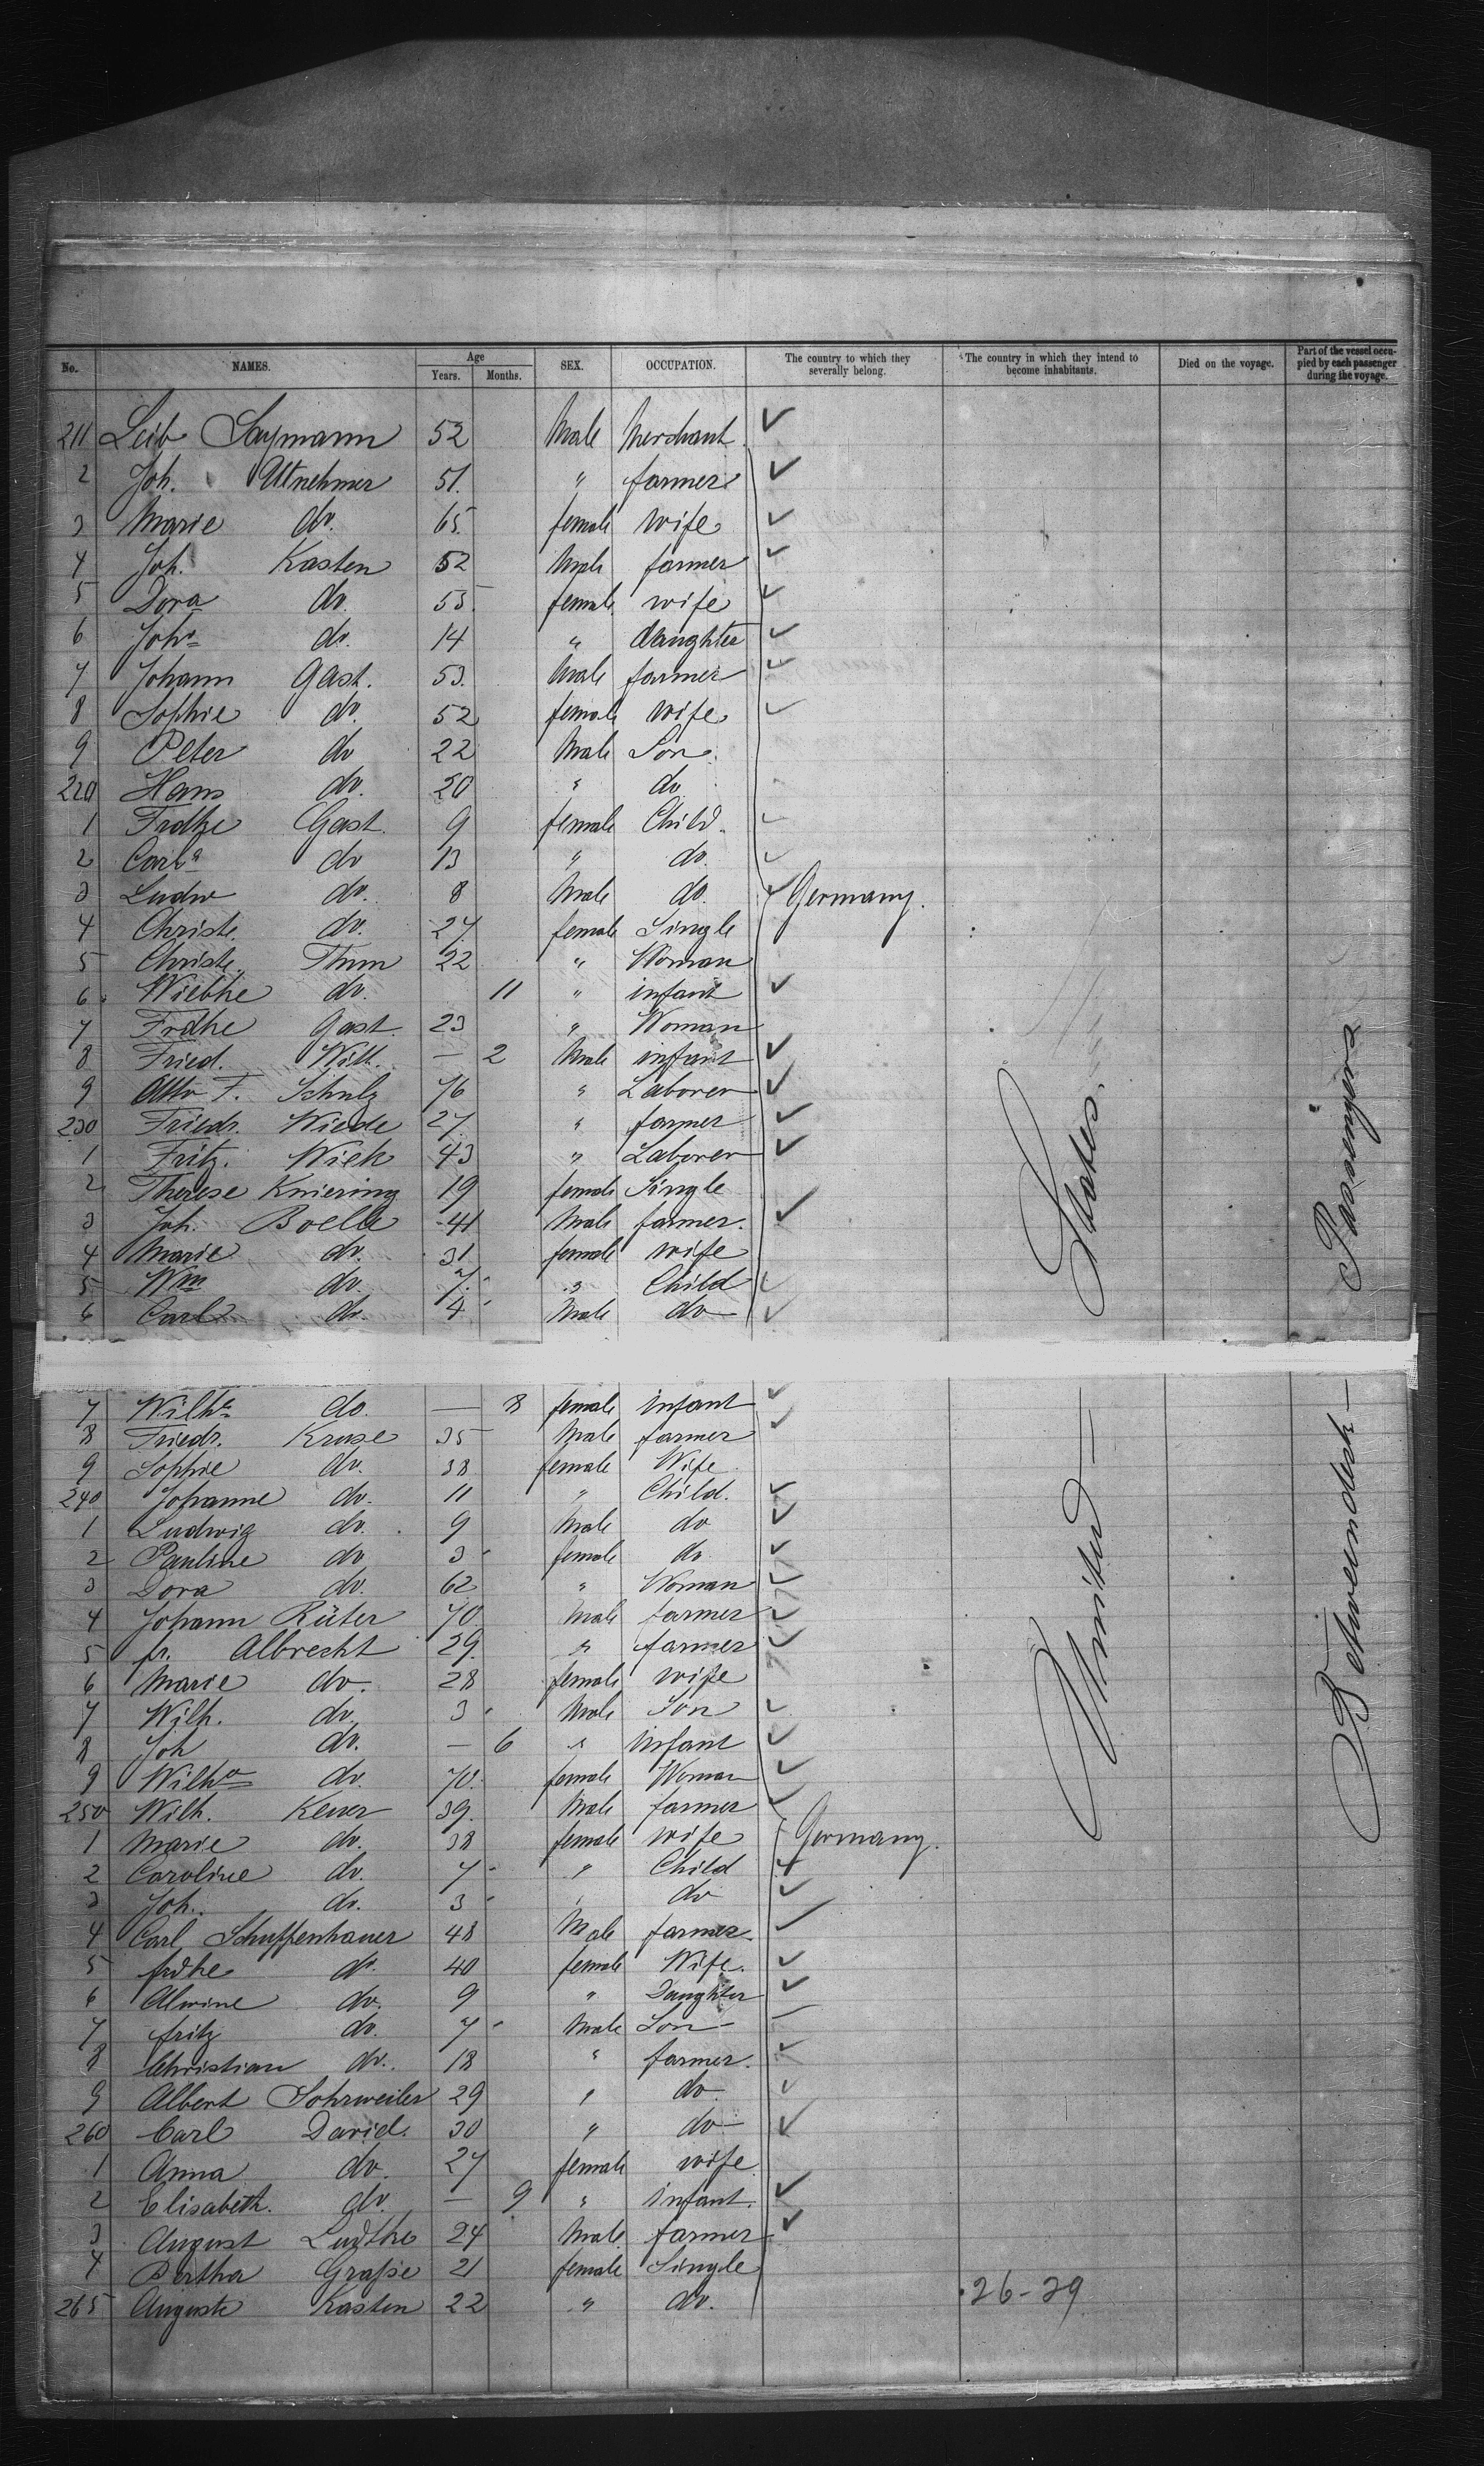 No. NAMES. Age Years. Months. SEX. OCCUPATION. The country to which they severally belong. The country in which they intend to become inhabitants. Died on the voyage. Part of the vessel occupied by each passenger during the voyage.
211 Leib Saymann 52 Male Merchant
2 Joh. Utnehmer 51. " farmer
3 Marie do. 65 female wife
4 Joh. Kasten 52 Male farmer
5 Dora do. 55 female wife
6 Joha do. 14 " daughter
7 Johann Gast. 53. Male farmer
8 Sophie do. 52 female wife
9 Peter do 22 Male Son
220 Hans do. 20 " do
1 Frdke Gast. 9 female Child
2 Carla do 13 " do.
3 Ludw do. 8 Male do. Germany.
4 Christe. do. 27 female Single
5 Christe. Thim 22 " Woman
6 Wiebke do. 11 " infant
7 Frdke Gast 23 " Woman
8 Fried. Wilh. — 2 Male infant
9 Otto F. Schulz 76 " Laborer
230 Friedr. Wiede 27 " farmer
1 Fritz. Wiek 43 " Laborer
2 Therese Kniering 19 female Single
3 Joh. Boelle 41 Male farmer.
4 Marie do. 31 female wife
5 Wm do. 7 " Child
6 Carl do. 4 Male do
7 Wilhe do. — 8 female infant
8 Friedr. Kruse 35 Male farmer
9 Sophie do. 38 female Wife
240 Johanne do. 11 " Child.
1 Ludwig do. 9 Male do
2 Pauline do 3 female do
3 Dora do. 62 " Woman
4 Johann Rüter 70 Male farmer
5 fr. Albrecht 29. " farmer
6 Marie do. 28 female wife
7 Wilh. do. 3 Male Son
8 Joh do. — 6 " infant
9 Wilha do. 70. female Woman
250 Wilh. Kewer 39. Male farmer
1 Marie do. 38 female wife Germany.
2 Caroline do. 7 " Child
3 Joh. do. 3 " do
4 Carl Schuffenhauer 48 Male farmer.
5 frdke do. 40 female Wife.
6 Alwine do. 9 " Daughter
7 fritz do. 7 Male Son
8 Christian do. 18 " farmer.
9 Albert Sohrweiler 29 " do
260 Carl David. 30 " do
1 Anna do. 27 female wife
2 Elisabeth. do. — 9 " infant.
3 August Ludtke 24 Male farmer
4 Bertha Graße 21 female Single
265 Auguste Kasten 22 " do.
United States.
Betweendeck Passengers
26-29